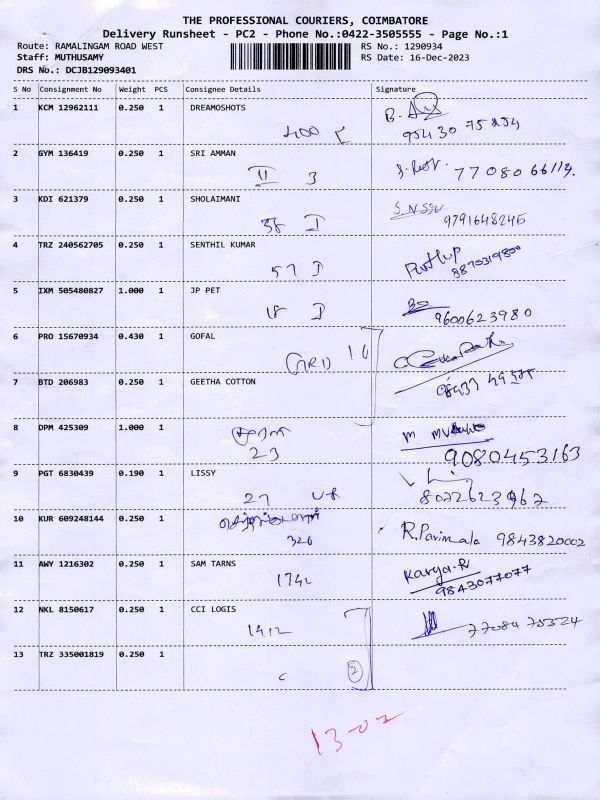 THE PROFESSIONAL COURIERS, COIMBATORE
Delivery Runsheet - PC2 - Phone No.:0422-3505555 - Page No.:1
Route: RAMALINGAM ROAD WEST RS No.: 1290934
Staff: MUTHUSAMY RS Date: 16-Dec-2023
DRS No.: DCJB129093401
S No Consignment No Weight PCS Consignee Details Signature
1 KCM 12962111 0.250 1 DREAMOSHOTS
400
2 GYM 136419 0.250 1 SRI AMMAN
II 3
3 KDI 621379 0.250 1 SHOLAIMANI
38 I 9791648245
4 TRZ 240562705 0.250 1 SENTHIL KUMAR
57 I 8870319800
5 IXM 505480827 1.000 1 JP PET
18 I 9600623980
6 PRO 15670934 0.430 1 GOFAL
(GRD) 10
7 BTD 206983 0.250 1 GEETHA COTTON
8 DPM 425309 1.000 1
23 9080453163
9 PGT 6830439 0.190 1 LISSY
27 8072623962
10 KUR 609248144 0.250 1
326 R.Parimala 9843820002
11 AWY 1216302 0.250 1 SAM TARNS
174L Karya.R 9843077077
12 NKL 8150617 0.250 1 CCI LOGIS
141L 77084 75324
13 TRZ 335001819 0.250 1
2
13-02